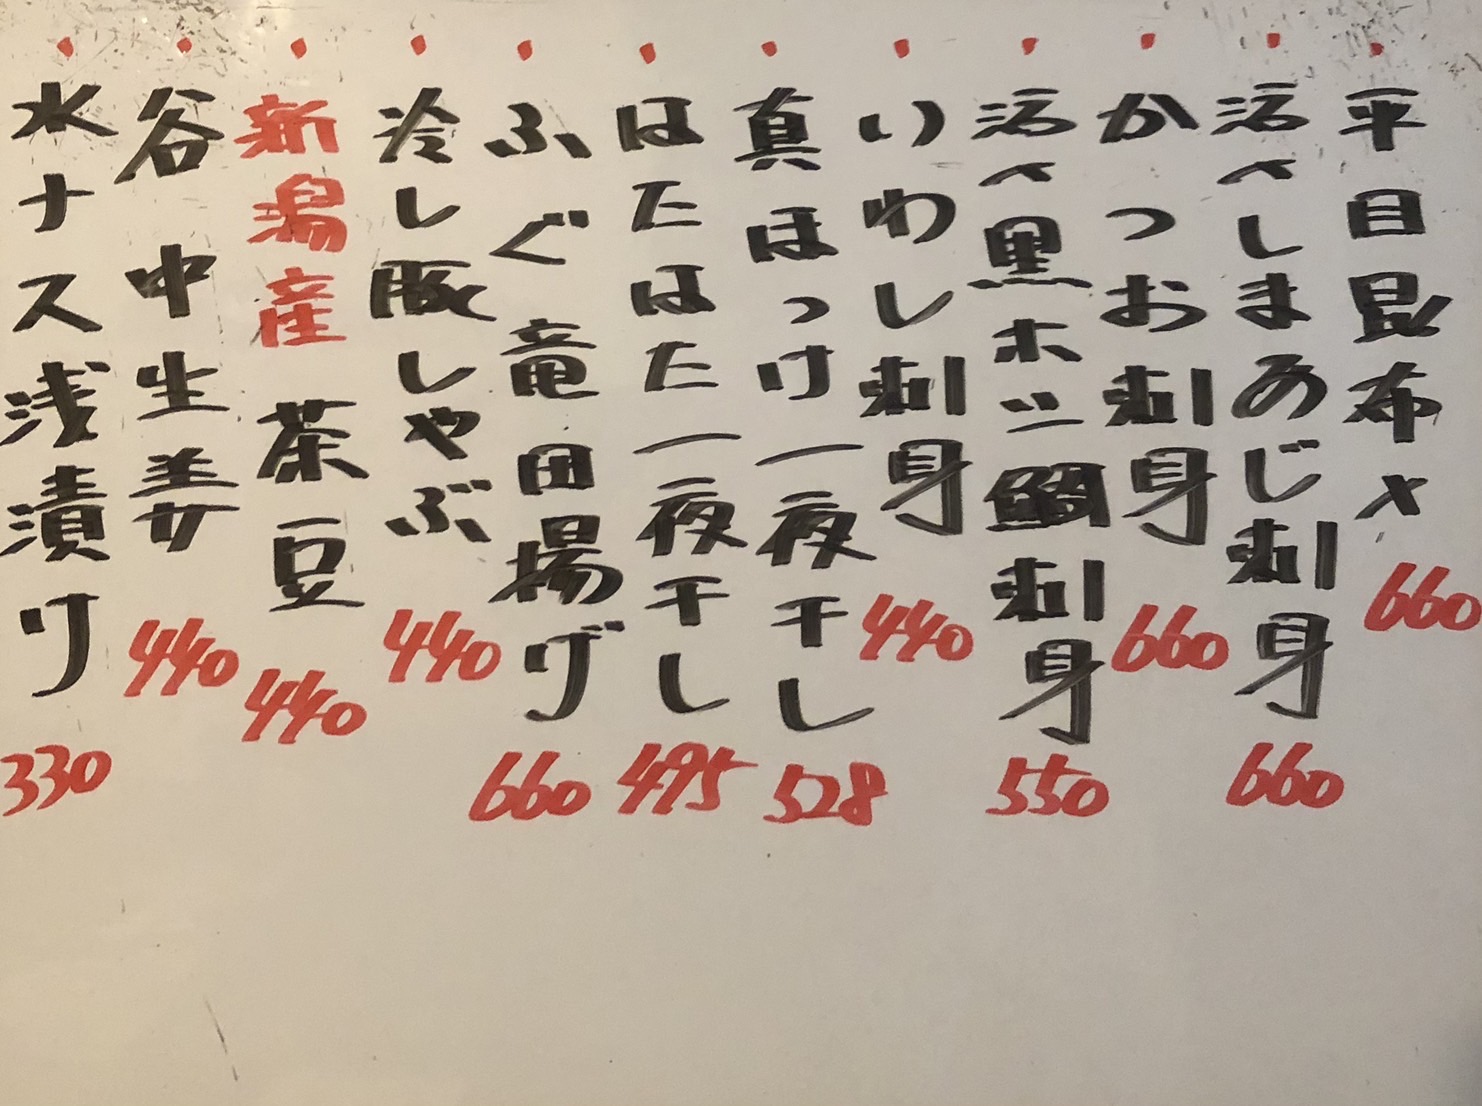 ・平目昆布〆 660
・活〆しまあじ刺身 660
・かつお刺身 660
・活〆黒ホシ鯛刺身 550
・いわし刺身 440
・真ほっけ一夜干し 528
・はたはた一夜干し 495
・ふぐ竜田揚げ 660
・冷し豚しゃぶ 440
・新潟産茶豆 440
・谷中生姜 440
・水ナス浅漬け 330